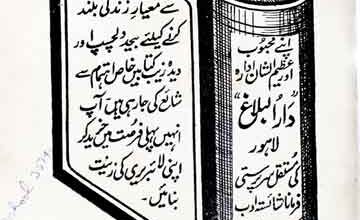 اپنے محبوب
اور عظیم الشان ادارہ
"دارالبلاغ"
لاہور
کی مستقل سرپرستی
فرمانا شانت ادب
سے معیارِ زندگی بلند
کرنے کیلئے بیحد دلچسپ اور
دیدہ زیب کتابیں خاص اہتمام سے
شائع کی جارہی ہیں۔ آپ
انہیں پہلی فرصت میں خرید کر
اپنی لائبریری کی زینت
بنائیں۔